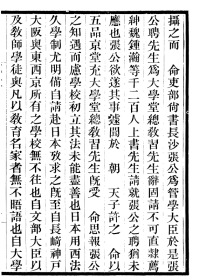 攝之而　命吏部尚書長沙張公爲管學大臣於是張
公聘先生爲大學堂總敎習先生辭固請不可直隸薦
紳魏鍾瀚等千二百人上書先生請就張公之聘猶未
應也張公欲遂其事遽聞於　朝　天子許之　命以
五品京堂充大學堂總敎習先生旣受　命思報張公
之知遇而慮學校初立其法未能盡善也日本用西法
久學制尤明備自請赴日本攷求之旣至自長崎神戶
大阪與東西京所有之學校無不往也自文部大臣以
及敎師學徒與凡以敎育名家者無不晤語也自大學